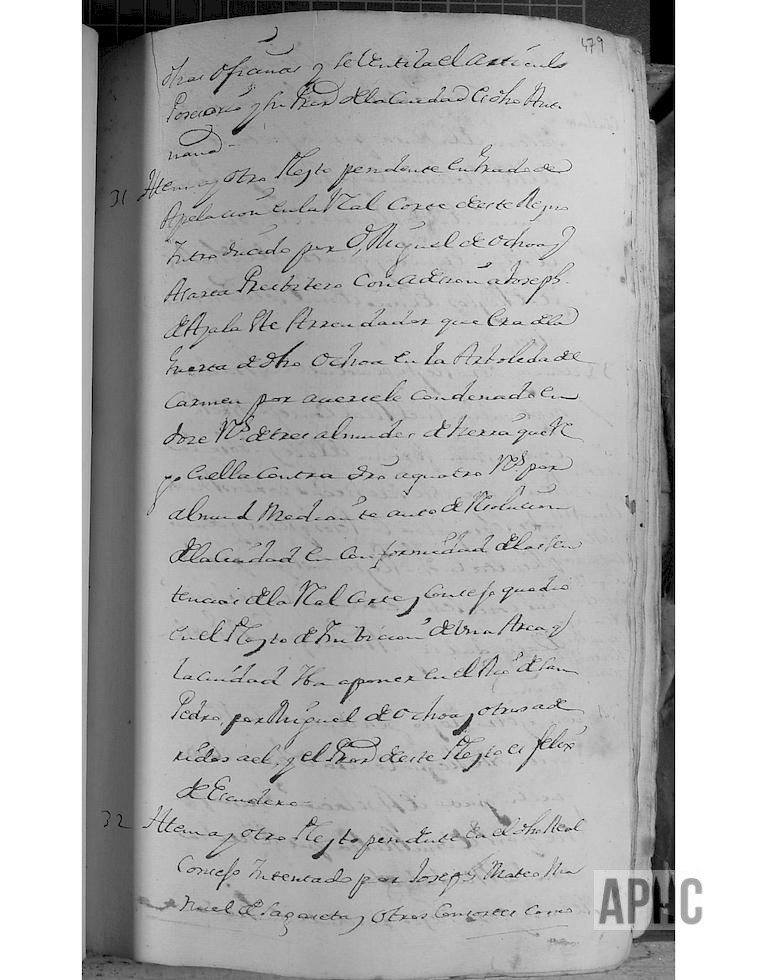 479
otras ofiçinas y se Ventila el articulo
Posesorio y su Pror de la Ciudad es dho Aue
nand
31 Item ay otro Pleyto pendiente en grado de
Apelacion en la Rl Corte de este Reyno
Introducido por Dn Miguel de Ochoa y
Presbitero con adicion a Joseph
de Ayala Arrendador que era de la
huerta de dho Ochoa en la Arboleda del
Carmen por auersele condenado en
doze Rs de tres almudes de tierra que Re
go en ella contra dro a quatro Rs por
almud Mediante auto de Resolucion
de la Ciudad en Conformidad de las sen
tencias de la Real Corte y Consejo que dio
en el Pleyto de de Vna Arca q
la ciudad Iba aponer en el Rio de San
Pedro, por Miguel de Ochoa y otros ade
ridos a el, y el Pror de este Pleyto es felix
de Escudero
32 Item ay otro Pleyto pendiente en el dho Real
Consejo Intentado por Joseph, Mateo Ma
nuel de Lazcueta y otros Consortes como
APHC